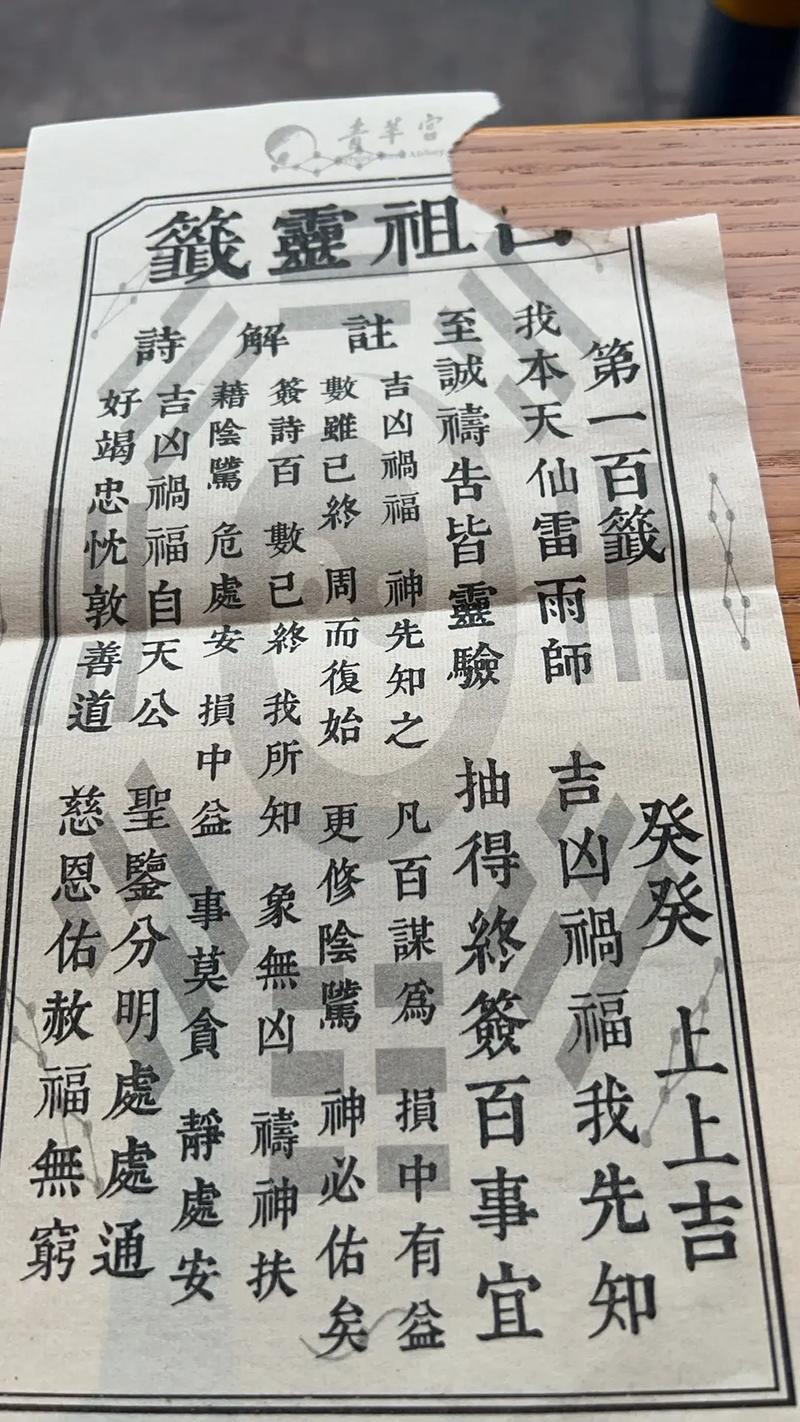 青華宮
祖靈籤
第一百籤 癸癸 上上吉
我本天仙雷雨師 吉凶禍福我先知
至誠禱告皆靈驗 抽得終簽百事宜
註
吉凶禍福 神先知之 凡百謀爲 損中有益
數雖已終 周而復始 更修陰騭 神必佑矣
解
簽詩百 數已終 我所知 象無凶 禱神扶
藉陰騭 危處安 損中益 事莫貪 靜處安
詩
吉凶禍福自天公 聖鑒分明處處通
好竭忠忱敦善道 慈恩佑赦福無窮